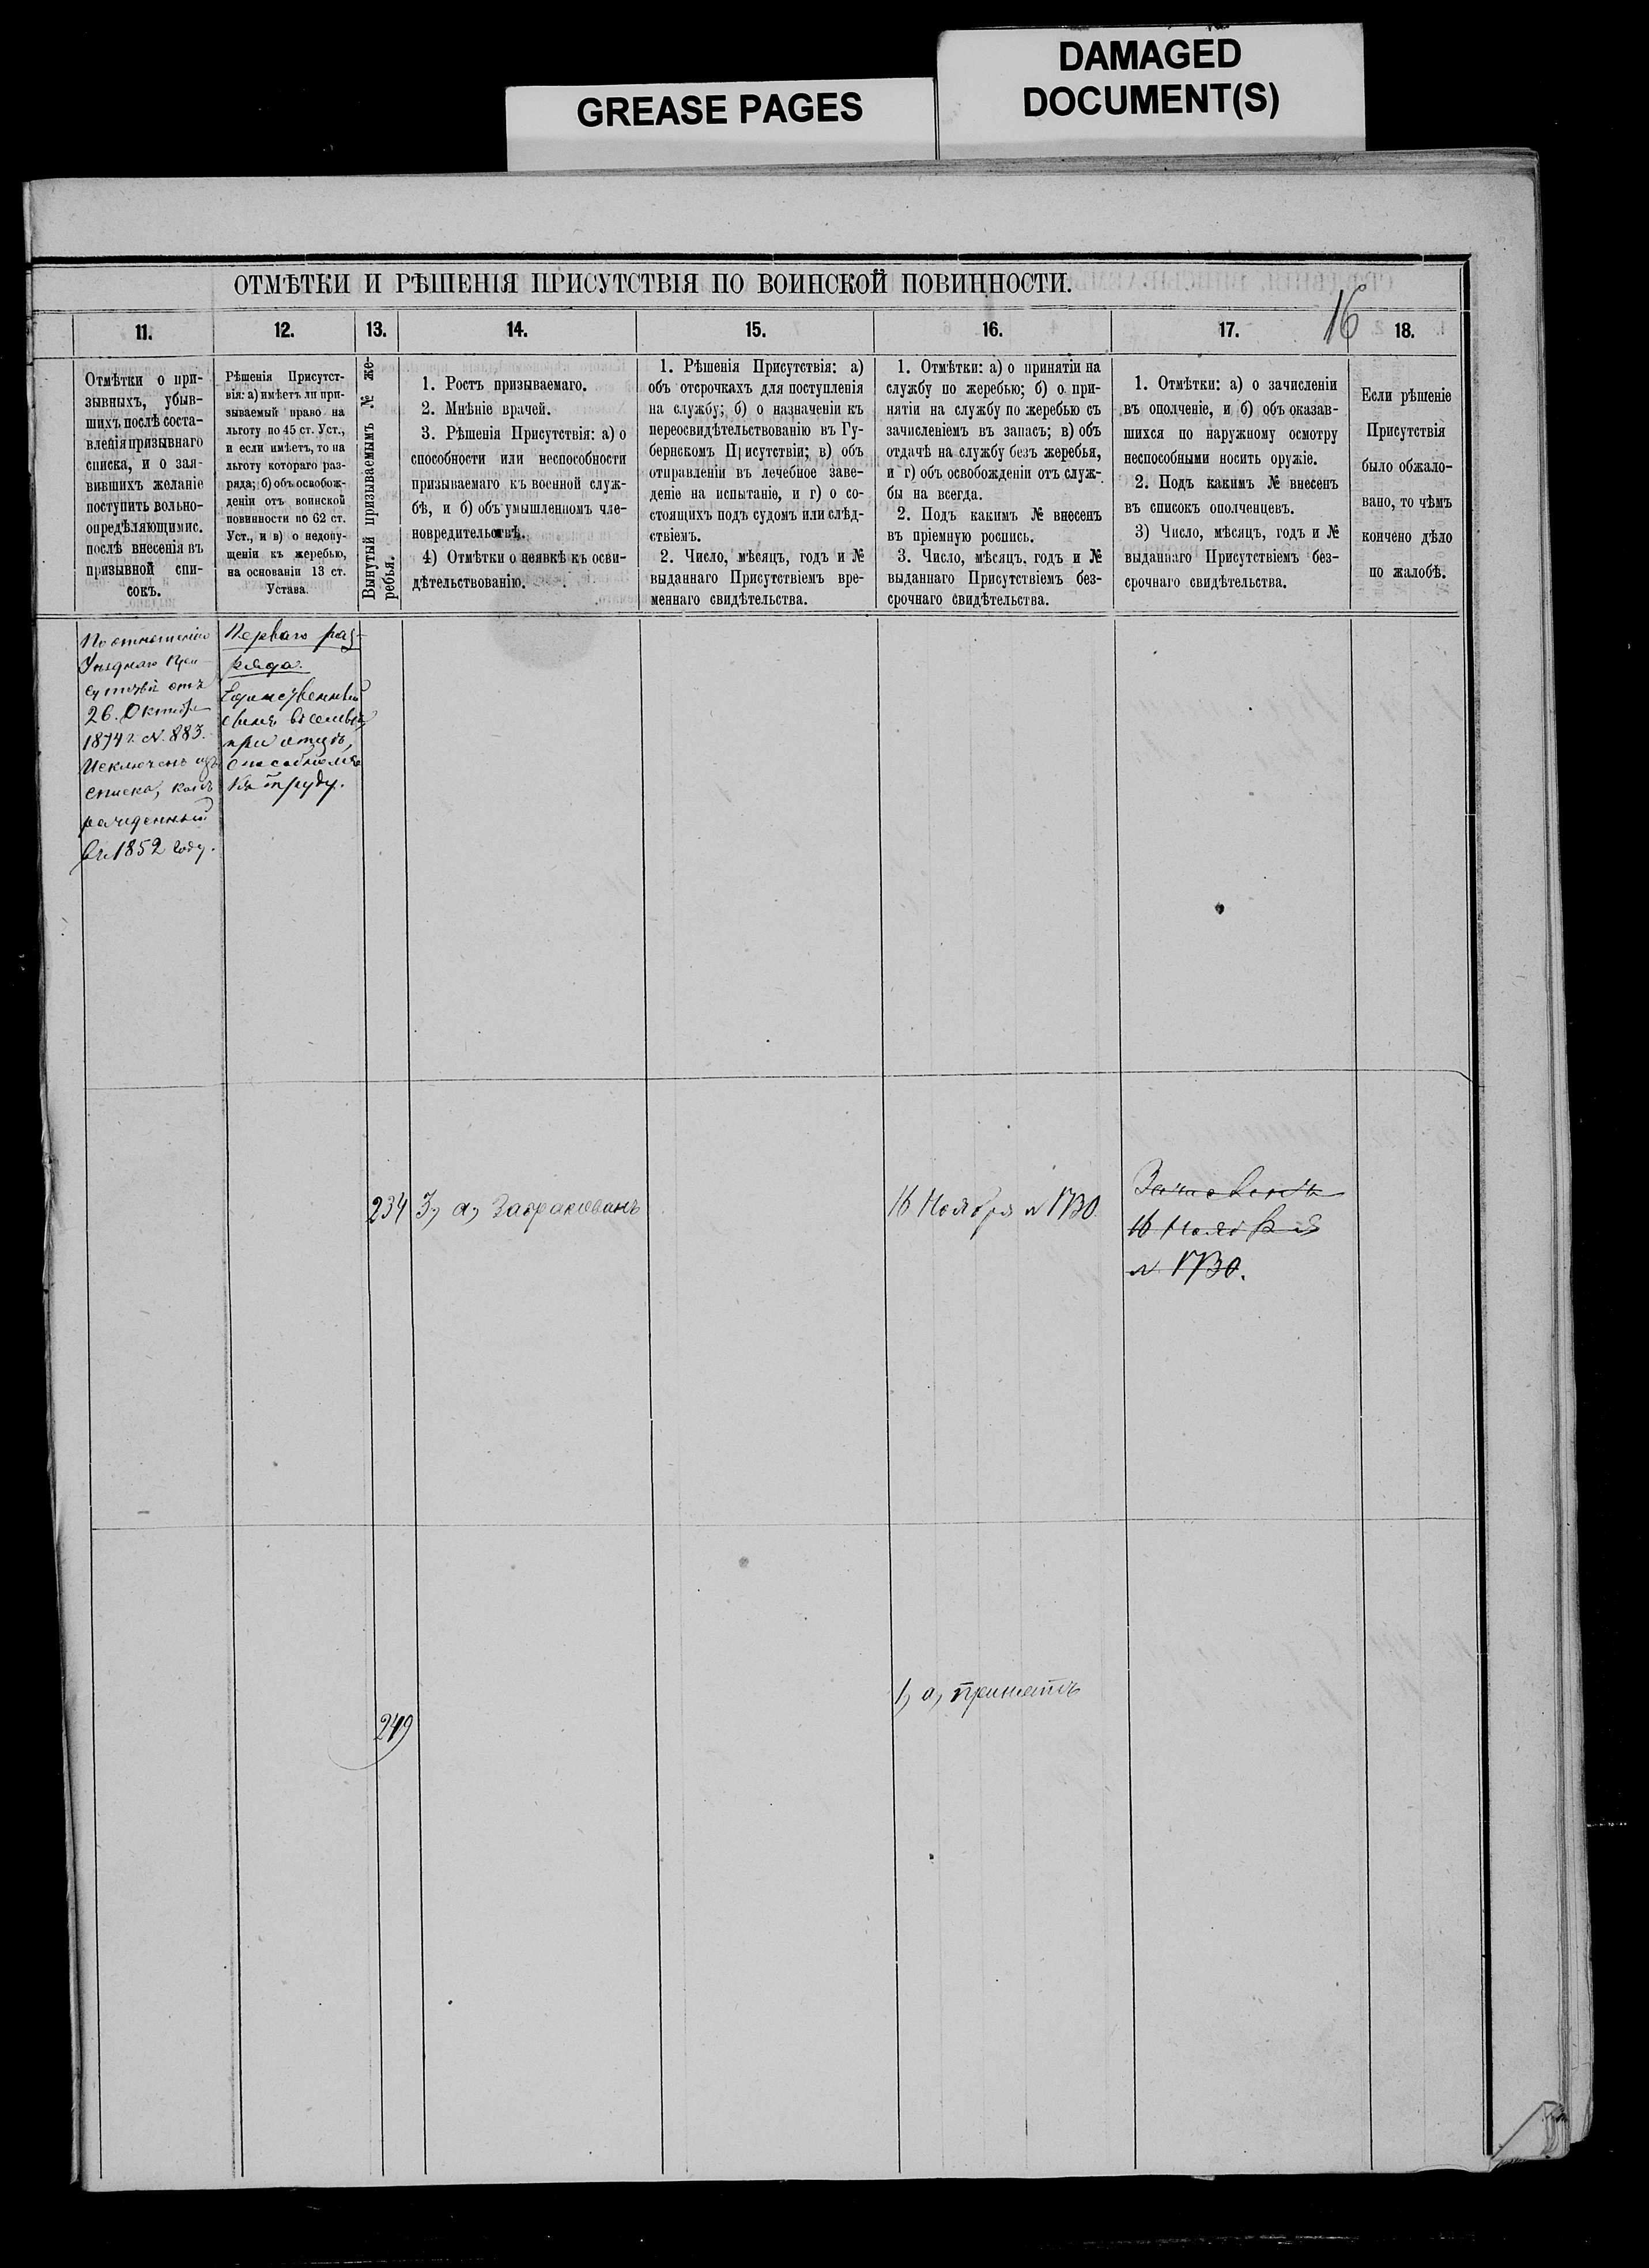 DAMAGED
DOCUMENT(S)
GREASE PAGES
ОТМѢТКИ И РѢШЕНІЯ ПРИСУТСТВІЯ ПО ВОИНСКОЙ ПОВИННОСТИ.
16
11.
12.
13.
14.
15.
16.
17.
18.
Отмѣтки о при-
зывныхъ, убыв-
шихъ послѣ соста-
вленія призывнаго
списка, и о зая-
вившихъ желаніе
поступить вольно-
опредѣляющимис.
послѣ внесенія въ
призывной спи-
сокъ.
Рѣшенія Присутст-
вія: а) имѣетъ ли при-
зываемый право на
льготу по 45 ст. Уст.,
и если имѣетъ, то на
льготу котораго раз-
ряда; б) объ освобож-
деніи отъ воинской
повинности по 62 ст.
Уст., и в) о недопу-
щеніи къ жеребью,
на основаніи 13 ст.
Устава.
Вынутый призываемымъ № же-
ребья.
1. Ростъ призываемаго.
2. Мнѣніе врачей.
3. Рѣшенія Присутствія: а) о
способности или неспособности
призываемаго къ военной служ-
бѣ, и б) объ умышленномъ чле-
новредительствѣ.
4) Отмѣтки о неявкѣ къ осви-
дѣтельствованію.
1. Рѣшенія Присутствія: а)
объ отсрочкахъ для поступленія
на службу; б) о назначеніи къ
переосвидѣтельствованію въ Гу-
бернскомъ Присутствіи; в) объ
отправленіи въ лечебное заве-
деніе на испытаніе, и г) о со-
стоящихъ подъ судомъ или слѣд-
ствіемъ.
2. Число, мѣсяцъ, годъ и №
выданнаго Присутствіемъ вре-
меннаго свидѣтельства.
1. Отмѣтки: а) о принятіи на
службу по жеребью; б) о при-
нятіи на службу по жеребью съ
зачисленіемъ въ запасъ; в) объ
отдачѣ на службу безъ жеребья,
и г) объ освобожденіи отъ служ-
бы на всегда.
2. Подъ какимъ № внесенъ
въ пріемную роспись.
3. Число, мѣсяцъ, годъ и №
выданнаго Присутствіемъ без-
срочнаго свидѣтельства.
1. Отмѣтки: а) о зачисленіи
въ ополченіе, и б) объ оказав-
шихся по наружному осмотру
неспособными носить оружіе.
2. Подъ какимъ № внесенъ
въ списокъ ополченцевъ.
3) Число, мѣсяцъ, годъ и №
выданнаго Присутствіемъ без-
срочнаго свидѣтельства.
Если рѣшеніе
Присутствія
было обжало-
вано, то чѣмъ
кончено дѣло
по жалобѣ.
По отношенію
Уѣзднаго При-
сутствія отъ
26. Октября
1874 г. №. 883.
Исключенъ изъ
списка, какъ
рожденный
въ 1852 году.
Перваго раз-
ряда.
Единственный
сынъ въ семьѣ,
при отцѣ,
способномъ
къ труду.
234
3, а, Забракованъ
16 Ноября № 1730.
16 Ноября
№ 1730.
249
1, а, принятъ